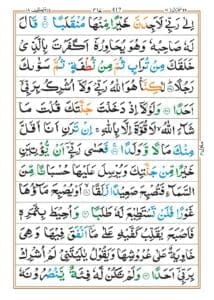 ٤١٧
اِلٰى رَبِّيْ لَاَجِدَنَّ خَيْرًا مِّنْهَا مُنْقَلَبًا ۚ قَالَ
لَهٗ صَاحِبُهٗ وَهُوَ يُحَاوِرُهٗٓ اَكَفَرْتَ بِالَّذِيْ
خَلَقَكَ مِنْ تُرَابٍ ثُمَّ مِنْ نُّطْفَةٍ ثُمَّ سَوّٰىكَ
رَجُلًا ؕ لٰكِنَّا۠ هُوَ اللّٰهُ رَبِّيْ وَلَاۤ اُشْرِكُ بِرَبِّيْۤ
اَحَدًا وَلَوْلَاۤ اِذْ دَخَلْتَ جَنَّتَكَ قُلْتَ مَا شَآءَ
اللّٰهُ ۙ لَا قُوَّةَ اِلَّا بِاللّٰهِ ۚ اِنْ تَرَنِ اَنَا اَقَلَّ مِنْكَ
مَالًا وَّوَلَدًا ۚ فَعَسٰى رَبِّيْۤ اَنْ يُّؤْتِيَنِ
خَيْرًا مِّنْ جَنَّتِكَ وَيُرْسِلَ عَلَيْهَا حُسْبَانًا مِّنَ
السَّمَآءِ فَتُصْبِحَ صَعِيْدًا زَلَقًا ۙ اَوْ يُصْبِحَ مَآؤُهَا
غَوْرًا فَلَنْ تَسْتَطِيْعَ لَهٗ طَلَبًا وَاُحِيْطَ بِثَمَرِهٖ
فَاَصْبَحَ يُقَلِّبُ كَفَّيْهِ عَلٰى مَاۤ اَنْفَقَ فِيْهَا وَهِيَ
خَاوِيَةٌ عَلٰى عُرُوْشِهَا وَيَقُوْلُ يٰلَيْتَنِيْ لَمْ اُشْرِكْ
بِرَبِّيْۤ اَحَدًا وَلَمْ تَكُنْ لَّهٗ فِئَةٌ يَّنْصُرُوْنَهٗ